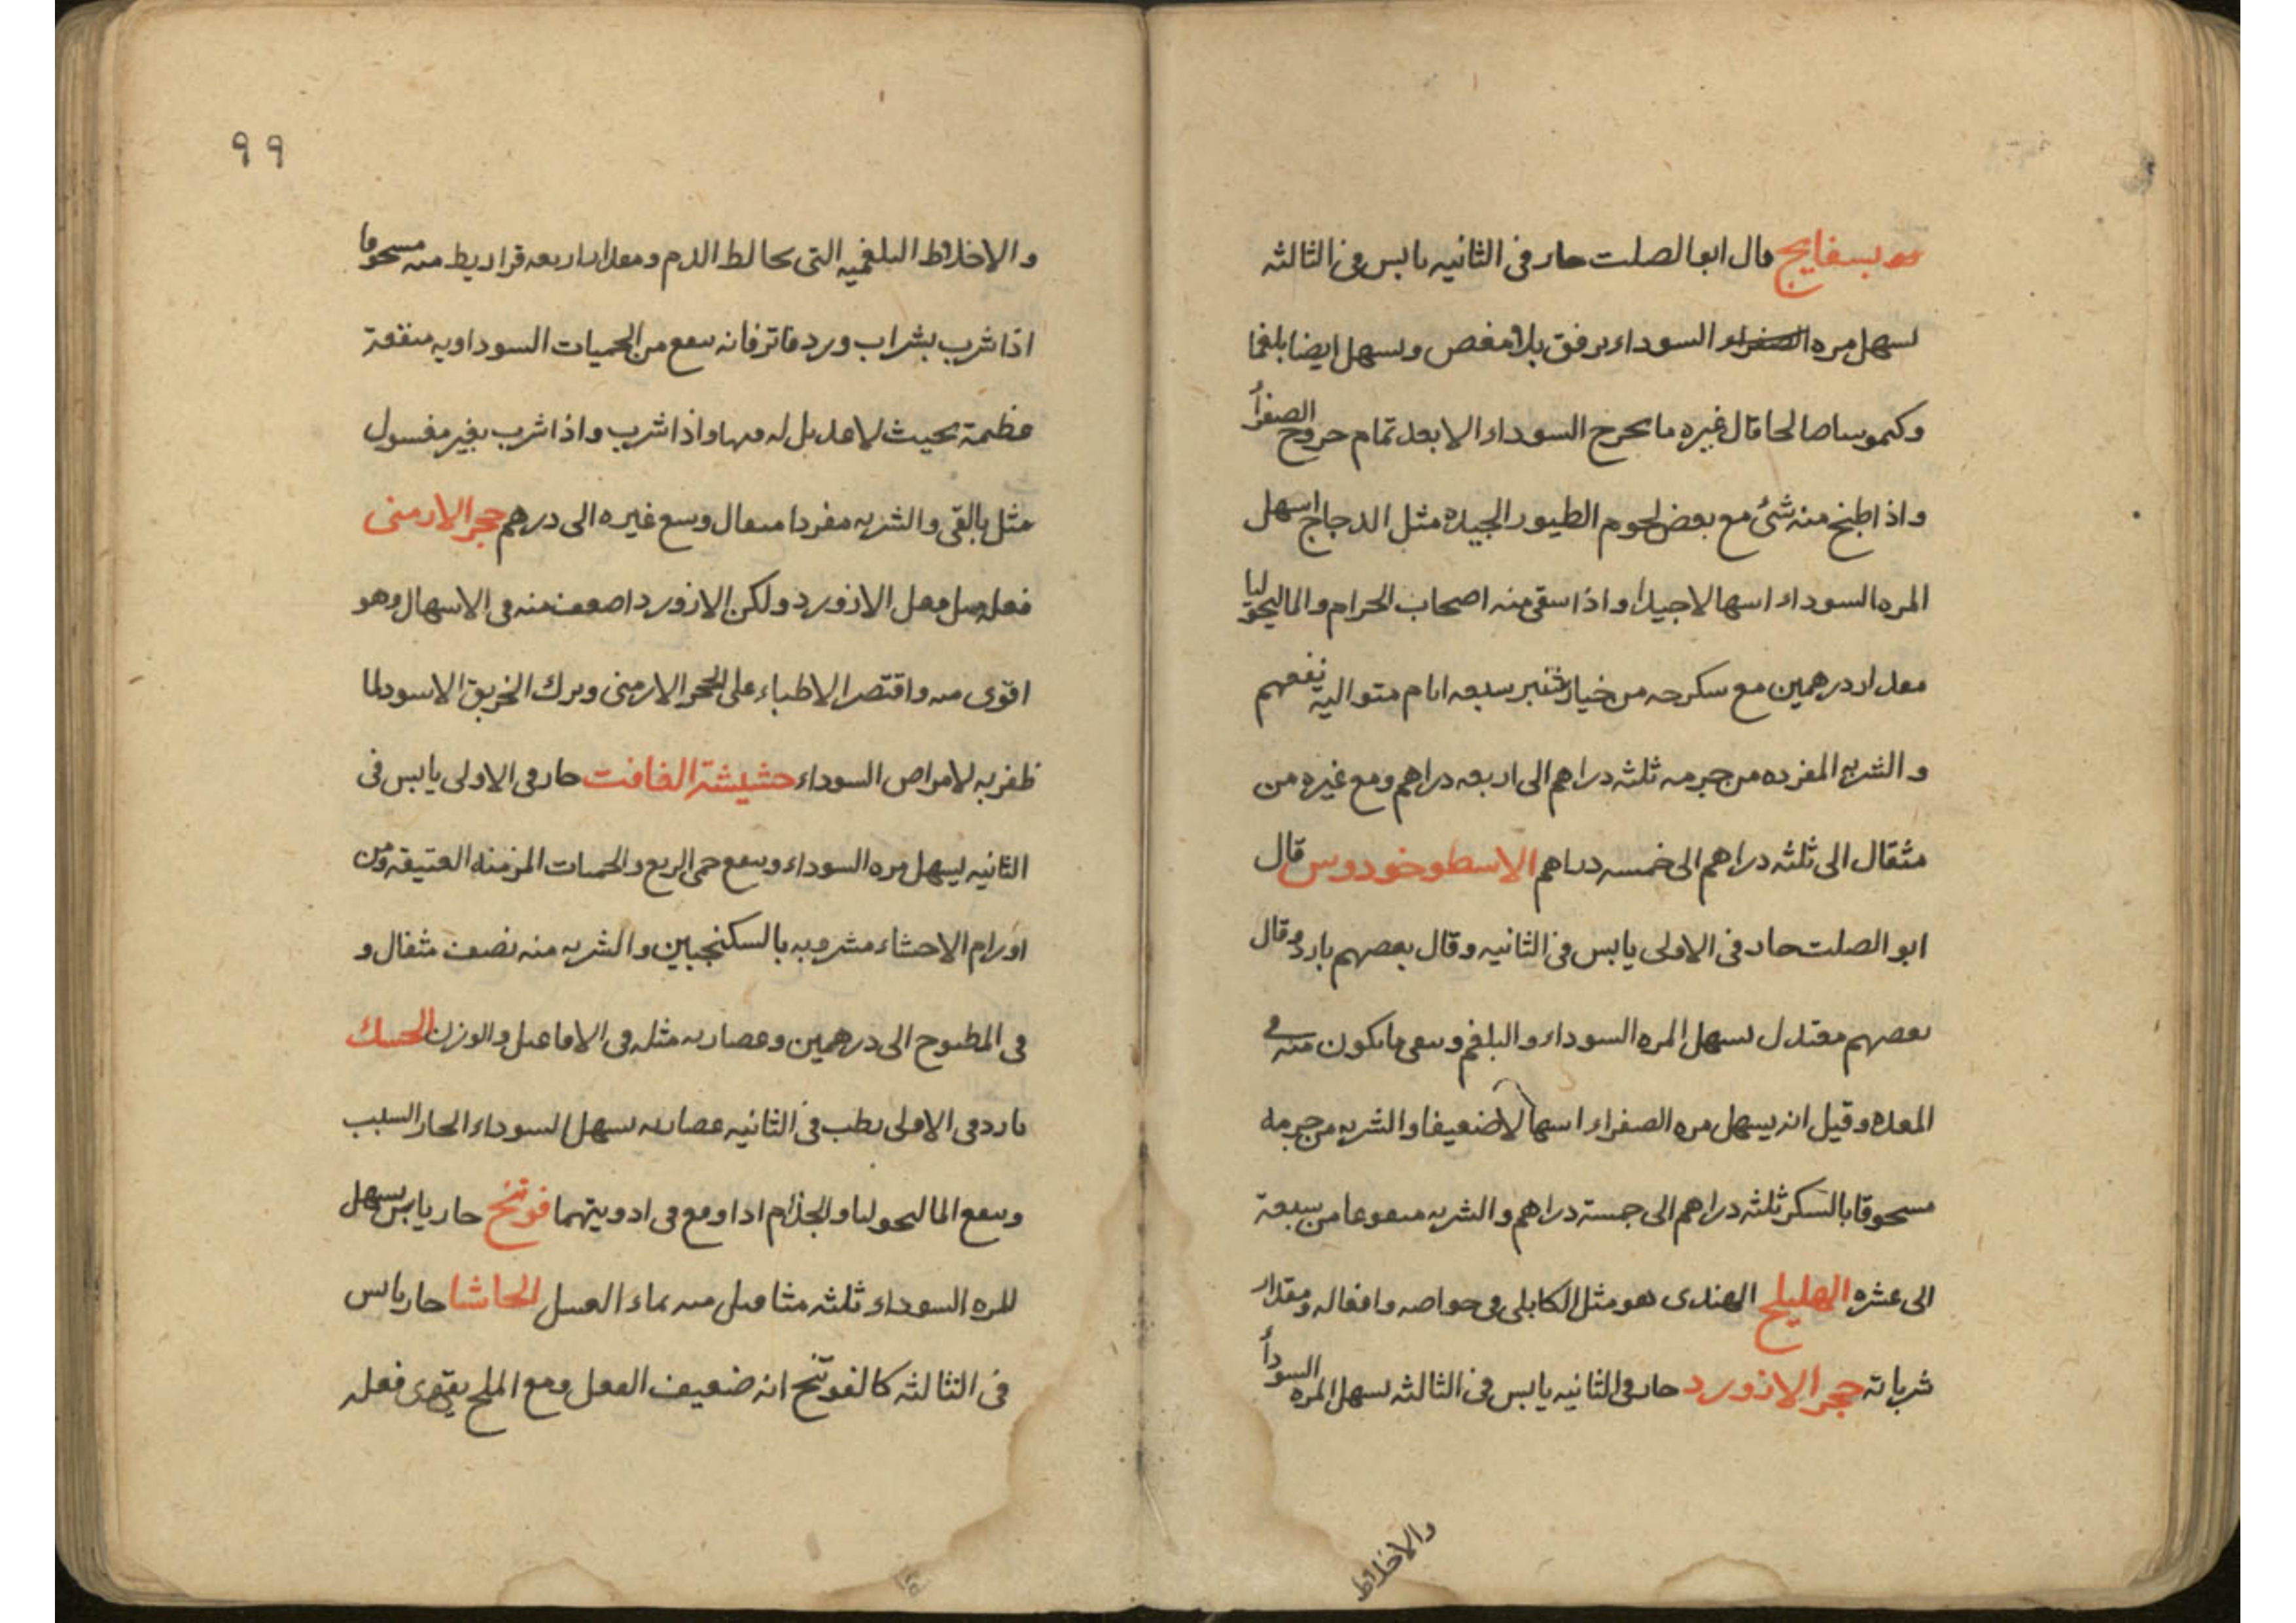 بسفايج قال ابو الصلت حار فى الثانيه يابس فى الثالثه
يسهل مره الصفراء السوداء برفق بلا مغص ويسهل ايضا بلغما
وكيموسا صالحا قال غيره ما يخرج السوداء الا بعد تمام خروج الصفرأ
واذا طبخ منه شئ مع بعض لحوم الطيور الجيده مثل الدجاج اسهل
المره السوداء اسهالا جيدا واذا سقى منه اصحاب الحرام والماليخوليا
مقدار درهمين مع سكرجه من خيار شنبر سبعه ايام متواليه نفعهم
والشربه المفرده من جرمه ثلثه دراهم الى اربعه دراهم ومع غيره من
مثقال الى ثلثه دراهم الى خمسه دراهم الاسطوخودوس قال
ابو الصلت حار فى الاولى يابس فى الثانيه وقال بعضهم بارد وقال
بعضهم معتدل يسهل المره السوداء والبلغم وينقى ما يكون منه فى
المعده وقيل انه يسهل مره الصفراء اسهالا ضعيفا والشربه من جرمه
مسحوقا بالسكر ثلثه دراهم الى خمسة دراهم والشربه منقوعا من سبعة
الى عشره الهليلج الهندى هو مثل الكابلى فى خواصه وافعاله ومقدار
شرباته حجر الازورد حار فى الثانيه يابس فى الثالثه يسهل المره السودأ
والاخلاط
٩٩
والاخلاط البلغميه التى تخالط الدم ومقدار اربعه قراريط منه مسحوقا
اذا شرب بشراب ورد فاتر فانه ينفع من الحميات السوداويه منفعة
عظيمة بحيث لا عديل له فيها واذا شرب واذا شرب بغير مغسول
مثل بالقى والشربه مفردا مثقال وسع غيره الى درهم حجر الارمنى
فعله مثل فعل الازورد ولكن الازورد اضعف منه فى الاسهال وهو
اقوى منه واقتصر الاطباء على الحجر الارمنى وترك الخربق الاسود لما
ظفر به لامراض السوداء حشيشة الغافت حار فى الاولى يابس فى
الثانيه يسهل مره السوداء وينفع حمى الربع والحميات المزمنه العتيقه ومن
اورام الاحشاء مشروبه بالسكنجبين والشربه منه نصف مثقال و
فى المطبوخ الى درهمين وعصارته مثله فى الافاعيل والوزن الحسك
بارد فى الاولى رطب فى الثانيه عصارته يسهل السوداء الحار السبب
وينفع الماليخوليا والجذام اذا وقع فى ادويتهما فوتنج حار يابس يسهل
المره السوداء ثلثه مثاقيل منه بماء العسل الحاشا حار يابس
فى الثالثه كالفوتنج انه ضعيف الفعل ومع الملح يقوى فعله